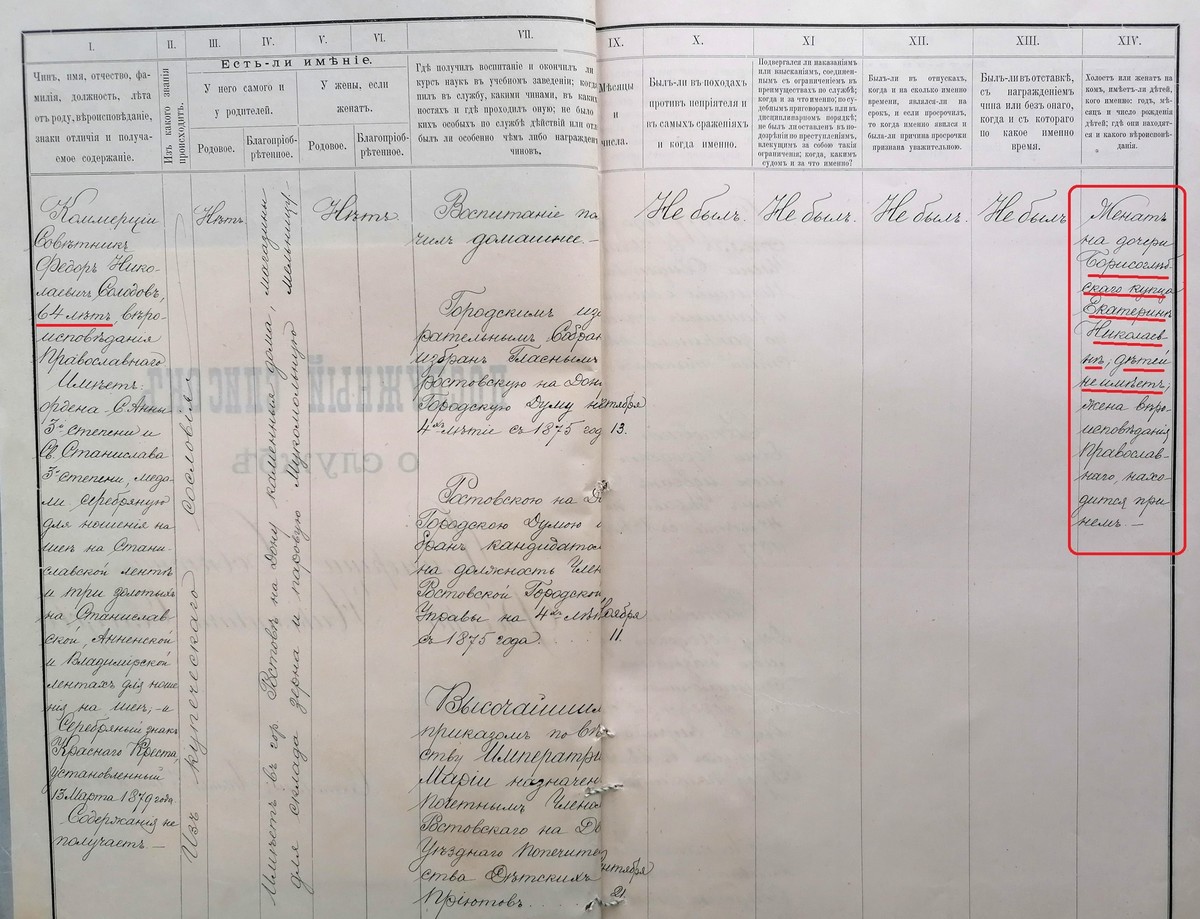 I.
II.
III.
IV.
V.
VI.
VII.
IX.
X.
XI
XII.
XIII.
XIV.
Чинъ, имя, отчество, фа-
милія, должность, лѣта
отъ роду, вѣроисповѣданіе,
знаки отличія и получа-
емое содержаніе.
Изъ какого званія
происходитъ.
Есть-ли имѣніе.
У него самого и
у родителей.
У жены, если
женатъ.
Родовое.
Благопріоб-
рѣтенное.
Родовое.
Благопріоб-
рѣтенное.
Гдѣ получилъ воспитаніе и окончилъ ли
курсъ наукъ въ учебномъ заведеніи; когда
пилъ въ службу, какими чинами, въ какихъ
ностяхъ и гдѣ проходилъ оную; не было
кихъ особыхъ по службѣ дѣйствій или отл
былъ ли особенно чѣмъ либо награжденъ
чиновъ.
Мѣсяцы
и
числа.
Былъ-ли въ походахъ
противъ непріятеля и
въ самыхъ сраженіяхъ
и когда именно.
Подвергался ли наказаніямъ
или взысканіямъ, соединен-
нымъ съ ограниченіемъ въ
преимуществахъ по службѣ;
когда и за что именно; по су-
дебнымъ приговорамъ или въ
дисциплинарномъ порядкѣ;
не былъ ли оставленъ въ по-
дозрѣніи по преступленіямъ,
влекущимъ за собою такія
ограниченія; когда, какимъ
судомъ и за что именно?
Былъ-ли въ отпускахъ,
когда и на сколько именно
времени, являлся-ли на
срокъ, и если просрочилъ,
то когда именно явился и
была-ли причина просрочки
признана уважительною.
Былъ-ли въ отставкѣ,
съ награжденіемъ
чина или безъ онаго,
когда и съ котораго
по какое именно
время.
Холостъ или женатъ на
комъ, имѣетъ-ли дѣтей,
кого именно: годъ, мѣ-
сяцъ и число рожденія
дѣтей; гдѣ они находят-
ся и какого вѣроисповѣ-
данія.
Коммерціи
Совѣтникъ
Федоръ Нико-
лаевичъ Солодовъ,
64 лѣтъ, вѣро-
исповѣданія
Православнаго
Имѣетъ:
ордена Св. Анны
3й степени и
Св. Станислава
3й степени, меда-
ли серебряную
для ношенія на
шеѣ на Стани-
славской лентѣ
и три золотыя
на Станислав-
ской, Анненской
и Владимірской
лентахъ для ноше
нія на шеѣ; и
Серебряный знакъ
Краснаго Креста,
установленный
13 Марта 1879 года.
Содержанія не
получаетъ —
Изъ купеческаго сословія
Нѣтъ.
Имѣетъ въ гор. Ростовѣ на Дону каменные дома, магазины
для склада зерна и паровую мукомольную мельницу.
Нѣтъ.
Воспитаніе по
чилъ домашнее. —
Городскимъ из
рательнымъ Собран
избранъ Гласнымъ
Ростовскую на Дон
Городскую Думу на
4хъ лѣтіе съ 1875 год
нтября
13.
Ростовскою на Д
Городскою Думою и
бранъ кандидатом
на должность Член
Ростовской Городской
Управы на 4хъ лѣт
съ 1875 года.
оября
11.
Высочайшим
приказомъ по вѣ
ству Императри
Маріи назначен
Почетнымъ Члено
Ростовскаго на До
Уѣзднаго Попечител
ства Дѣтскихъ
Пріютовъ
нтября
21.
Не былъ.
Не былъ.
Не былъ.
Не былъ.
Женатъ
на дочери
Борисоглѣб-
скаго купца
Екатеринѣ
Николаев-
нѣ, дѣтей
не имѣетъ;
жена вѣро-
исповѣданія
Православ-
наго, нахо-
дится при
немъ. —